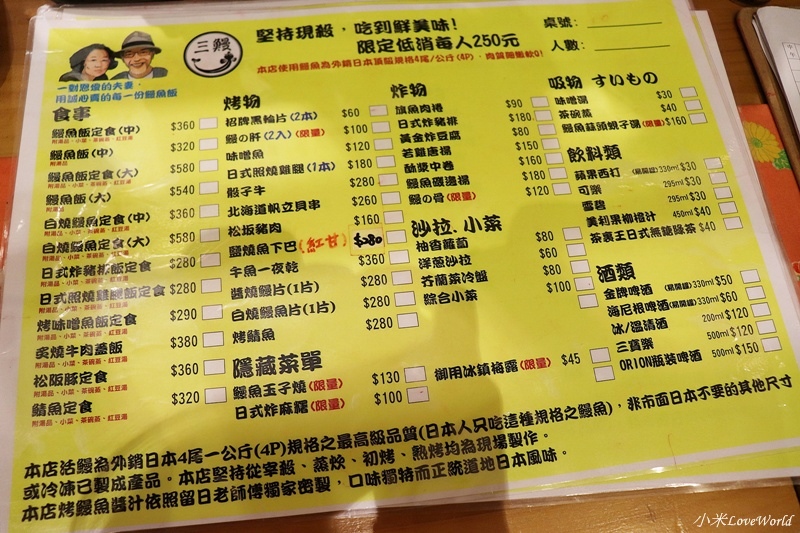 三鰻
堅持現殺，吃到鮮美味！
限定低消每人250元
本店使用鰻魚為外銷日本頂級規格4尾/公斤(4P)，肉質
桌號：
人數：
一對恩愛的夫妻，
用誠心賣的每一份鰻魚飯
食事
鰻魚飯定食(中) $360
附湯品、小菜、茶碗蒸、紅豆湯
鰻魚飯(中) $320
附湯品
鰻魚飯定食(大) $580
附湯品、小菜、茶碗蒸、紅豆湯
鰻魚飯(大) $540
附湯品
白燒鰻魚定食(中) $360
附湯品、小菜、茶碗蒸、紅豆湯
白燒鰻魚定食(大) $580
附湯品、小菜、茶碗蒸、紅豆湯
日式炸豬排飯定食 $280
附湯品、小菜、茶碗蒸、紅豆湯
日式照燒雞腿飯定食 $280
附湯品、小菜、茶碗蒸、紅豆湯
烤味噌魚飯定食 $290
附湯品、小菜、茶碗蒸、紅豆湯
炙燒牛肉蓋飯 $380
附湯品、小菜、茶碗蒸、紅豆湯
松阪豚定食 $360
附湯品、小菜、茶碗蒸、紅豆湯
鯖魚定食 $320
附湯品、小菜、茶碗蒸、紅豆湯
烤物
招牌黑輪片(2本) $60
鰻の肝(2入)(限量) $100
味噌魚 $120
日式照燒雞腿(1本) $180
骰子牛 $280
北海道帆立貝串 $260
松坂豬肉 $160
鹽燒魚下巴(紅甘) $280
午魚一夜乾 $360
醬燒鰻片(1片) $280
白燒鰻魚片(1片) $280
烤鯖魚 $280
隱藏菜單
鰻魚玉子燒(限量) $130
日式炸麻糬(限量) $100
御用冰鎮梅露(限量) $45
炸物
旗魚肉捲 $90
日式炸豬排 $180
黃金炸豆腐 $80
若雞唐揚 $150
酥漿中卷 $160
鰻魚磯邊揚 $180
鰻の骨(限量) $120
沙拉、小菜
柚香蘆筍 $80
洋蔥沙拉 $60
芥蘭菜冷盤 $80
綜合小菜 $100
吸物 すいもの
味噌湯 $30
茶碗蒸 $40
鰻魚蒜頭蜆子湯(限量) $160
飲料類
蘋果西打(易開罐)330ml $30
可樂 295ml $30
雪碧 295ml $30
美粒果柳橙汁 450ml $40
茶裏王日式無糖綠茶 $40
酒類
金牌啤酒(易開罐)330ml $50
海尼根啤酒(易開罐)330ml $60
冰/溫清酒 200ml $120
三寶樂 500ml $120
ORION瓶裝啤酒 500ml $150
本店活鰻為外銷日本4尾一公斤(4P)規格之最高級品質(日本人只吃這種規格之鰻魚)，非市面日本不要的其他尺寸
或冷凍已製成產品。本店堅持從宰殺、蒸炊、初烤、熟烤均為現場製作。
本店烤鰻魚醬汁依照留日老師傅獨家密製，口味獨特而正統道地日本風味。
小米LoveWorld